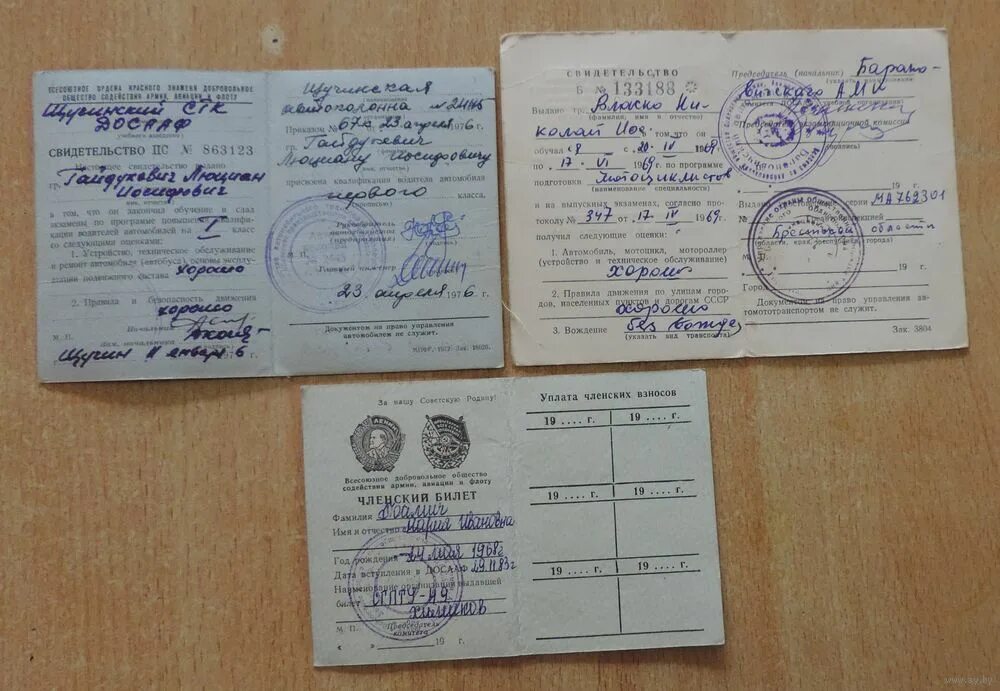 ВСЕСОЮЗНОЕ ОРДЕНА КРАСНОГО ЗНАМЕНИ ДОБРОВОЛЬНОЕ
ОБЩЕСТВО СОДЕЙСТВИЯ АРМИИ, АВИАЦИИ И ФЛОТУ
Щучинский СТК
ДОСААФ
СВИДЕТЕЛЬСТВО ПС № 863123
Настоящее свидетельство выдано
гр. Гайдукевич Люциан
Иосифович
в том, что он закончил обучение и сдал
экзамены по программе повышения квалифи-
кации водителей автомобилей на I класс
со следующими оценками:
1. Устройство, техническое обслуживание
и ремонт автомобиля (автобуса) основы эксплу-
атации подвижного состава хорошо
2. Правила и безопасность движения
хорошо
Начальник
М. П.
Щучин 11 января 6
Щучинская
автоколонна №
Приказом № 67к 23 апреля 1976
гр. Гайдукевич
Люциану Иосифовичу
присвоена квалификация водителя автомобиля
первого класса,
Руководитель
автохозяйства
(предприятия)
Главный инженер
23 апреля 1976 г.
Документом на право управления
автомобилем не служит.
СВИДЕТЕЛЬСТВО
Б № 133188
Выдано тру. Влакко Ни-
(фамилия, имя и отчество)
колай Иос. в том что он
обучал с 8 с 20-IV 1969
по 17-VI 1969 г. по программе
подготовки мотоциклистов
(наименование специальности)
и на выпускных экзаменах, согласно про-
токолу № 347 от 17-IV 1969 г.
получил следующие оценки:
1. Автомобиль, мотоцикл, мотороллер
(устройство и техническое обслуживание)
хорошо
2. Правила движения по улицам горо-
дов, населенных пунктов и дорогам СССР
хорошо
3. Вождение без вожде
(указать вид транспорта)
Председатель (начальник) Барано-
вичского АМК
Председатель экзаменационной комиссии
(подпись)
19 г.
Выдано МА 762301
Брестской области
(области, края, республики, города)
19 г.
Город
Документом на право управления
автомототранспортом не служит.
Зак. 3804
За нашу Советскую Родину!
Всесоюзное добровольное общество
содействия армии, авиации и флоту
ЧЛЕНСКИЙ БИЛЕТ
Фамилия
Имя и отчество Мария Ивановна
Год рождения 24 мая 1968г
Дата вступления в ДОСААФ 29.11.83г
Наименование организации выдавшей
билет СГПТУ-49
химиков
М. П.
Председатель
комитета
« » 19 г.
Уплата членских взносов
19 .... г. 19 .... г.
19 .... г. 19 .... г.
19 .... г. 19 .... г.
www.ay.by